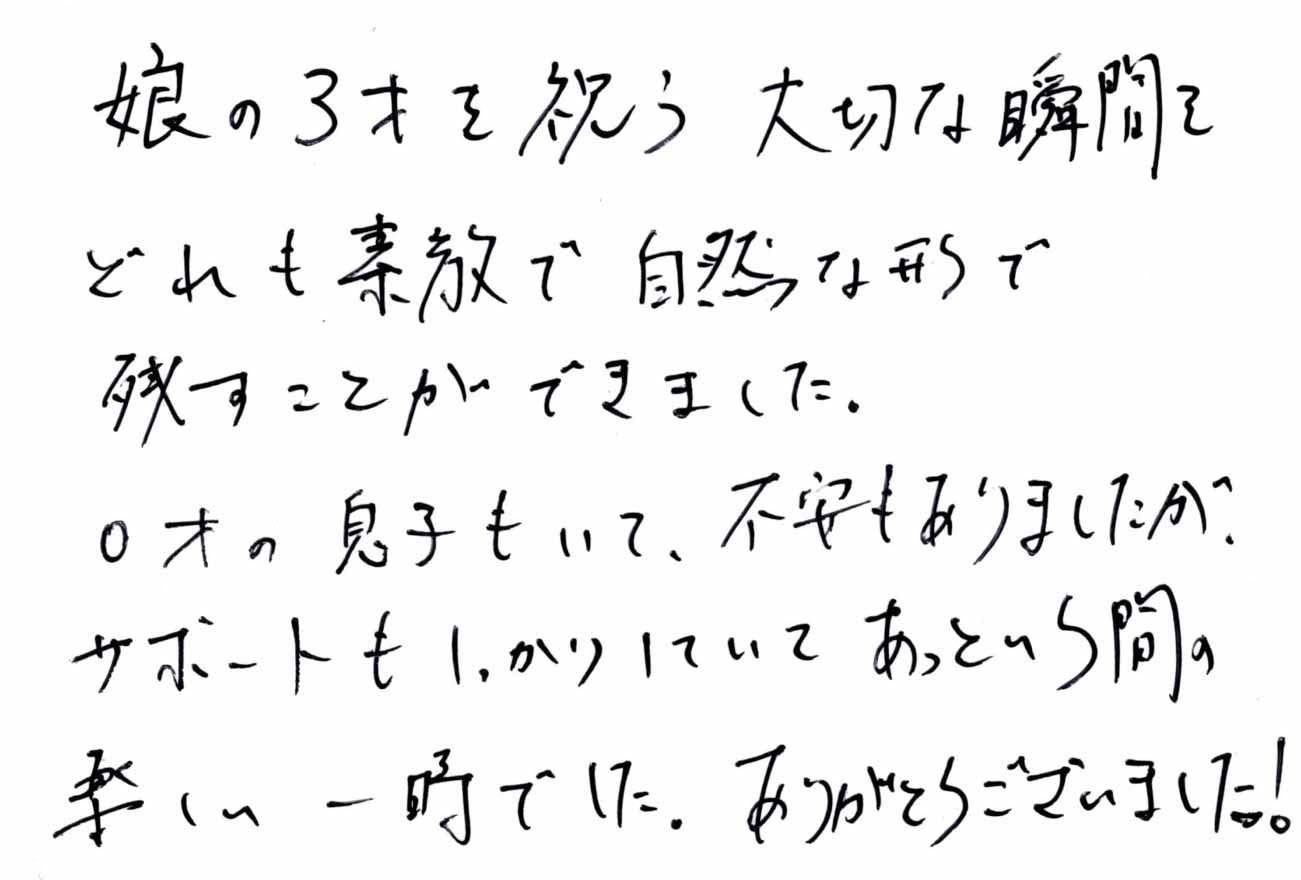 娘の3才を祝う 大切な瞬間を
どれも素敵で 自然な形で
残すことができました。
0才の息子もいて、不安もありましたが、
サポートもしっかりしていて あっという間の
楽しい一時でした。ありがとうございました!